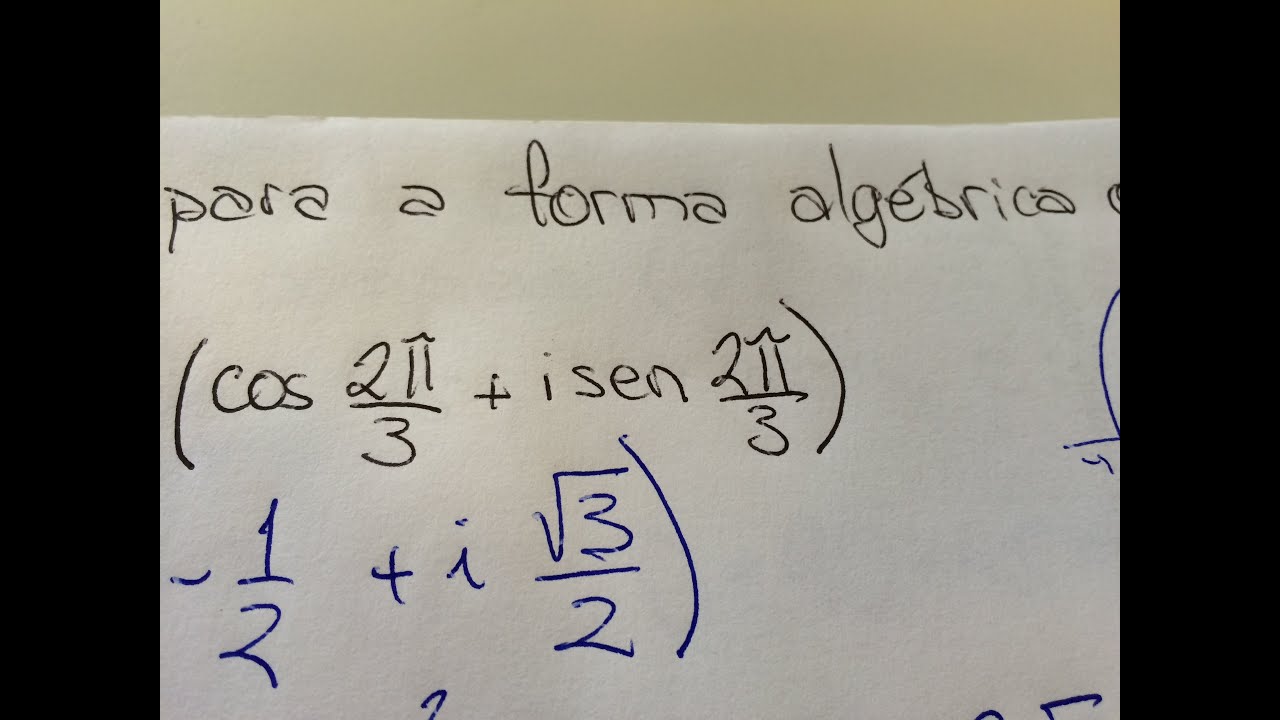 para a forma algébrica
(cos 2π/3 + i sen 2π/3)
- 1/2 + i √3/2)